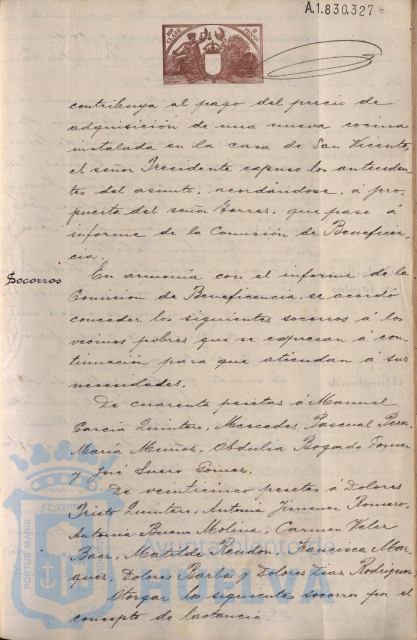 A.1.830.327
contribuya al pago del precio de
adquisición de una nueva cocina
instalada en la casa de San Vicente,
el señor Presidente expuso los anteceden-
tes del asunto, acordándose, á pro-
puesta del señor Torres, que pase á
informe de la Comisión de Beneficen-
cia.
Socorros
En armonía con el informe de la
Comision de Beneficencia, se acordó
conceder los siguientes socorros á los
vecinos pobres que se expresan á con-
tinuación para que atiendan á sus
necesidades.
De cuarenta pesetas á Manuel
García Quintero, Mercedes Pascual
María Muñoz, Obdulia Bogado
y José Suero Gomez.
De veinticinco pesetas á Dolores
Prieto Quintero, Antonia Jimenez Romero,
Antonia Bueno Molina, Carmen Velez
Baez, Matilde Rendon, Francisca Mar-
quez, Dolores Barba y Dolores Diaz Rodriguez
Otorgar los siguientes socorros por el
concepto de lactancia:
Ayuntamiento de
HUELVA
PORTUS MARIS